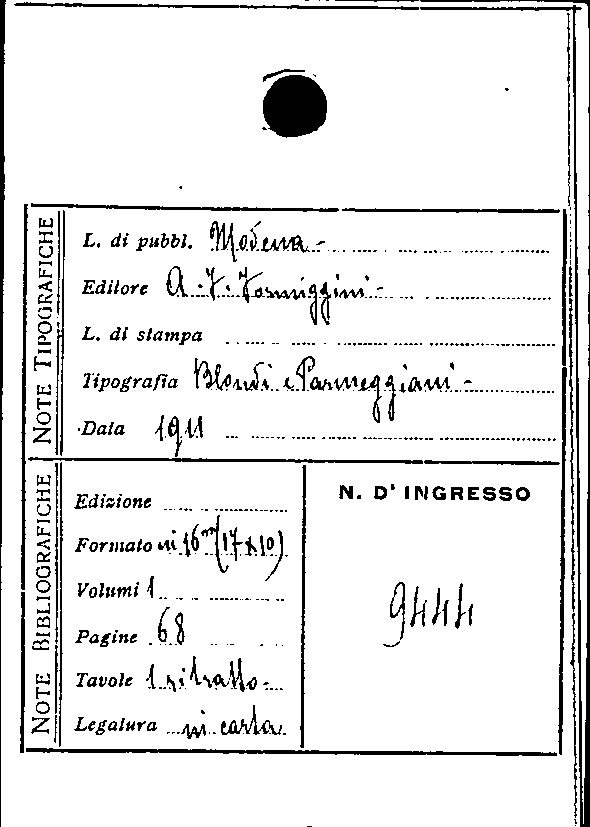 NOTE TIPOGRAFICHE
L. di pubbl. Modena -
Editore A. F. Formiggini -
L. di stampa
Tipografia Blondi e Parmeggiani -
Data 1911
NOTE BIBLIOGRAFICHE
Edizione
Formato in 16° (17 x 10)
Volumi 1
Pagine 68
Tavole 1 ritratto -
Legatura in carta
N. D' INGRESSO
9444